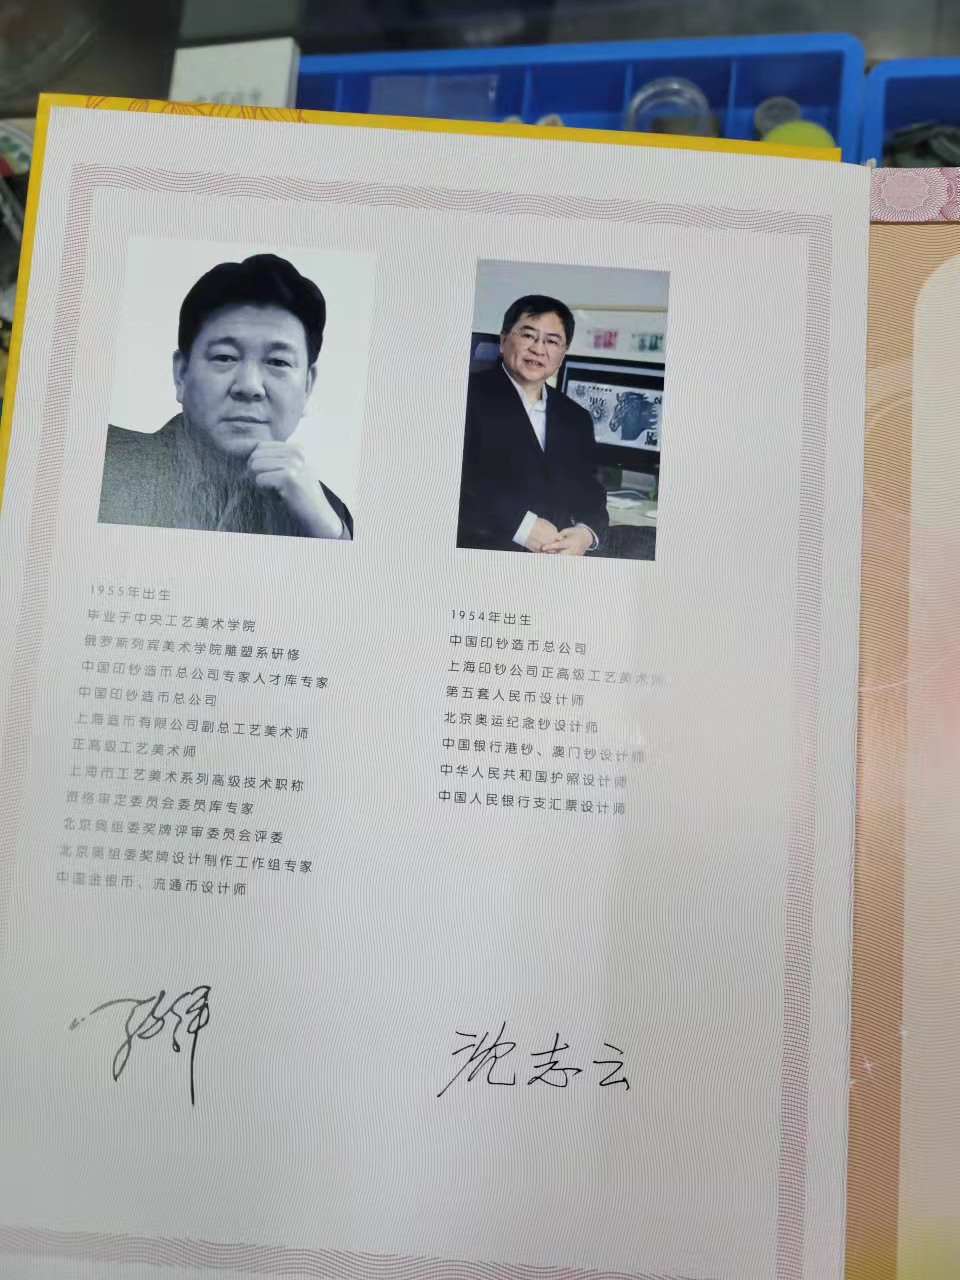 1955年出生
毕业于中央工艺美术学院
俄罗斯列宾美术学院雕塑系研修
中国印钞造币总公司专家人才库专家
中国印钞造币总公司
上海造币有限公司副总工艺美术师
正高级工艺美术师
上海市工艺美术系列高级技术职称
资格审定委员会委员库专家
北京奥组委奖牌评审委员会评委
北京奥组委奖牌设计制作工作组专家
中国金银币、流通币设计师
1954年出生
中国印钞造币总公司
上海印钞公司正高级工艺美术师
第五套人民币设计师
北京奥运纪念钞设计师
中国银行港钞、澳门钞设计师
中华人民共和国护照设计师
中国人民银行支汇票设计师
沈志云